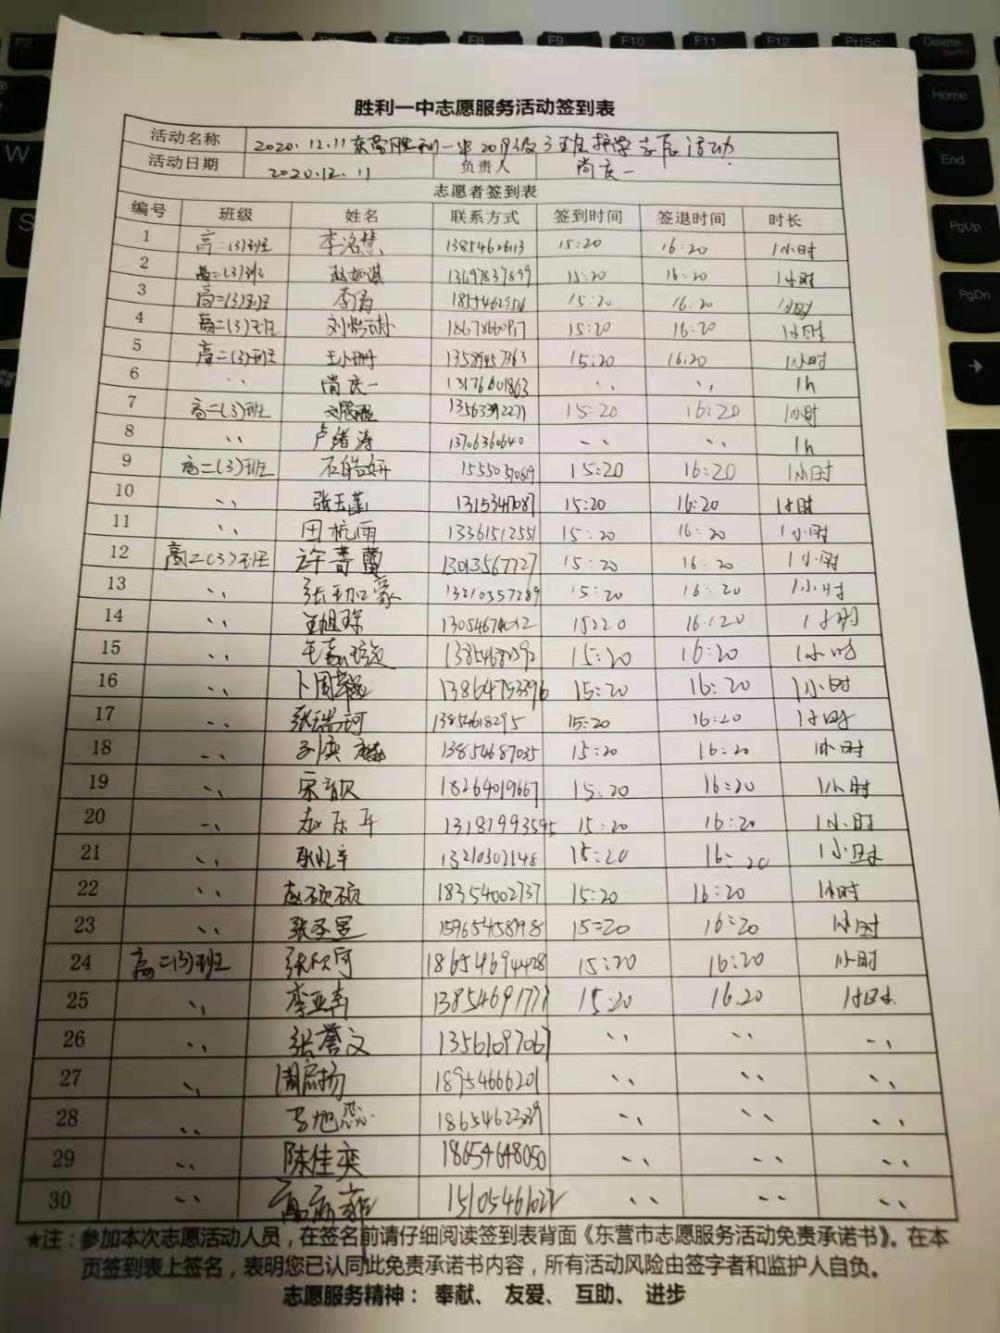 胜利一中志愿服务活动签到表
活动名称 2020.12.11东营胜利一中2019级3班 志愿活动
活动日期 2020.12.11 负责人 尚庆一
志愿者签到表
编号 班级 姓名 联系方式 签到时间 签退时间 时长
1 高二(3)班 李洺慧 15:20 16:20 1小时
2 高二(3)班 15:20 16:20 1小时
3 高二(3)班 15:20 16:20 1小时
4 高二(3)班 15:20 16:20 1小时
5 高二(3)班 王小珊 15:20 16:20 1小时
6 〃 尚庆一 13176601863 〃 〃 1h
7 高二(3)班 13563392271 15:20 16:20 1小时
8 〃 卢绪涛 13706360640 〃 〃 1h
9 高二(3)班 石皓妍 15:20 16:20 1小时
10 〃 张玉莲 15:20 16:20 1小时
11 〃 田杭雨 13361512551 15:20 16:20 1小时
12 高二(3)班 许青蕾 13013567727 15:20 16:20 1小时
13 〃 13210357289 15:20 16:20 1小时
14 〃 15:20 16:20 1小时
15 〃 15:20 16:20 1小时
16 〃 13864753396 15:20 16:20 1小时
17 〃 张瑞珂 13854618295 15:20 16:20 1小时
18 〃 13854687035 15:20 16:20 1小时
19 〃 宋音贝 18264019667 15:20 16:20 1小时
20 〃 赵东平 13181993595 15:20 16:20 1小时
21 〃 13210302148 15:20 16:20 1小时
22 〃 赵硕硕 18354002737 15:20 16:20 1小时
23 〃 张圣昱 15:20 16:20 1小时
24 高二(3)班 张欣可 18654694428 15:20 16:20 1小时
25 〃 15:20 16.20 1小时
26 〃 张誉文 13561097067 〃 〃 〃
27 〃 周启扬 18954666201 〃 〃 〃
28 〃 〃 〃 〃
29 〃 陈佳奕 18654648050 〃 〃 〃
30 〃 〃 〃 〃
★注：参加本次志愿活动人员，在签名前请仔细阅读签到表背面《东营市志愿服务活动免责承诺书》。在本
页签到表上签名，表明您已认同此免责承诺书内容，所有活动风险由签字者和监护人自负。
志愿服务精神： 奉献、 友爱、 互助、 进步
F2
F7
F8
F9
F10
F11
F12
PrtSc
Delete
Home
End
PgUp
PgDn
W
S